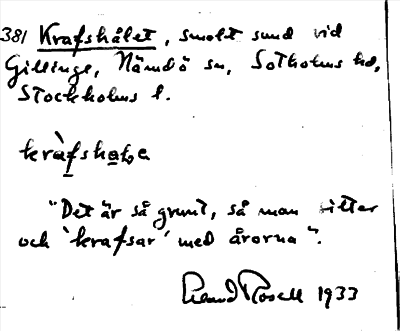 381 Krafshålet, smalt sund vid
Gillinge, Nämdö sn, Sotholms hd,
Stockholms l.
"Det är så grunt, så man sitter
och 'krafsar' med årorna".
Rosell 1933